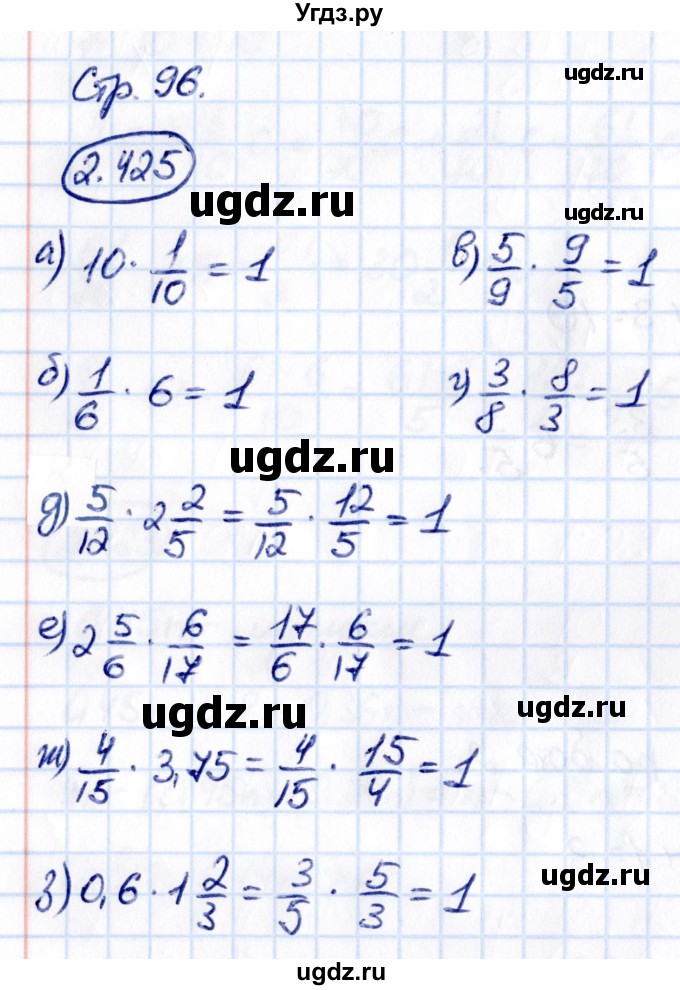 Угдз.ру
Стр. 96.
ugdz.ru
2.425
ugdz.ru
ugdz.ru
а) 10 · 1/10 = 1
в) 5/9 · 9/5 = 1
б) 1/6 · 6 = 1
г) 3/8 · 8/3 = 1
ugdz.ru
ugdz.ru
д) 5/12 · 2 2/5 = 5/12 · 12/5 = 1
е) 2 5/6 · 6/17 = 17/6 · 6/17 = 1
ugdz.ru
ugdz.ru
ж) 4/15 · 3,75 = 4/15 · 15/4 = 1
з) 0,6 · 1 2/3 = 3/5 · 5/3 = 1
ugdz.ru
ugdz.ru